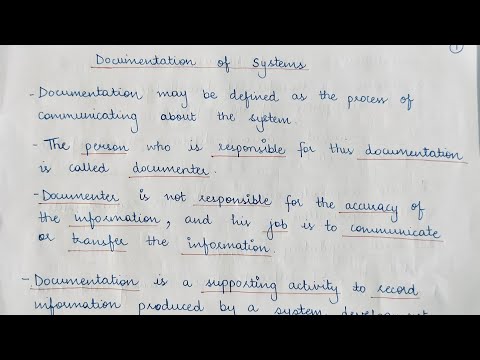 1
Documentation of Systems
- Documentation may be defined as the process of
communicating about the system.
- The person who is responsible for this documentation
is called documenter.
- Documenter is not responsible for the accuracy of
the information, and his job is to communicate
or transfer the information.
- Documentation is a supporting activity to record
information produced by a system